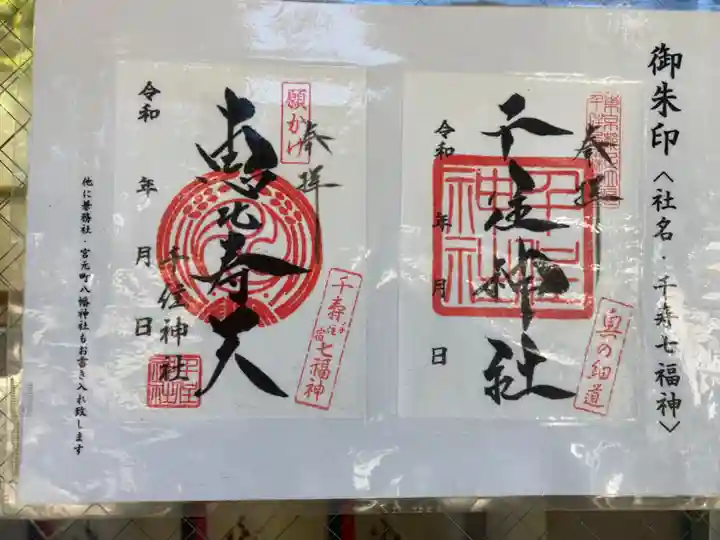 御朱印〈社名・千寿七福神〉
奉拝
千住神社
千住神社
奥の細道
令和 年 月 日
願かけ
奉拝
恵比寿天
千寿七福神
千住宿
千住神社
千住神社
令和 年 月 日
他に兼務社・宮元町八幡神社もお書き入れ致します